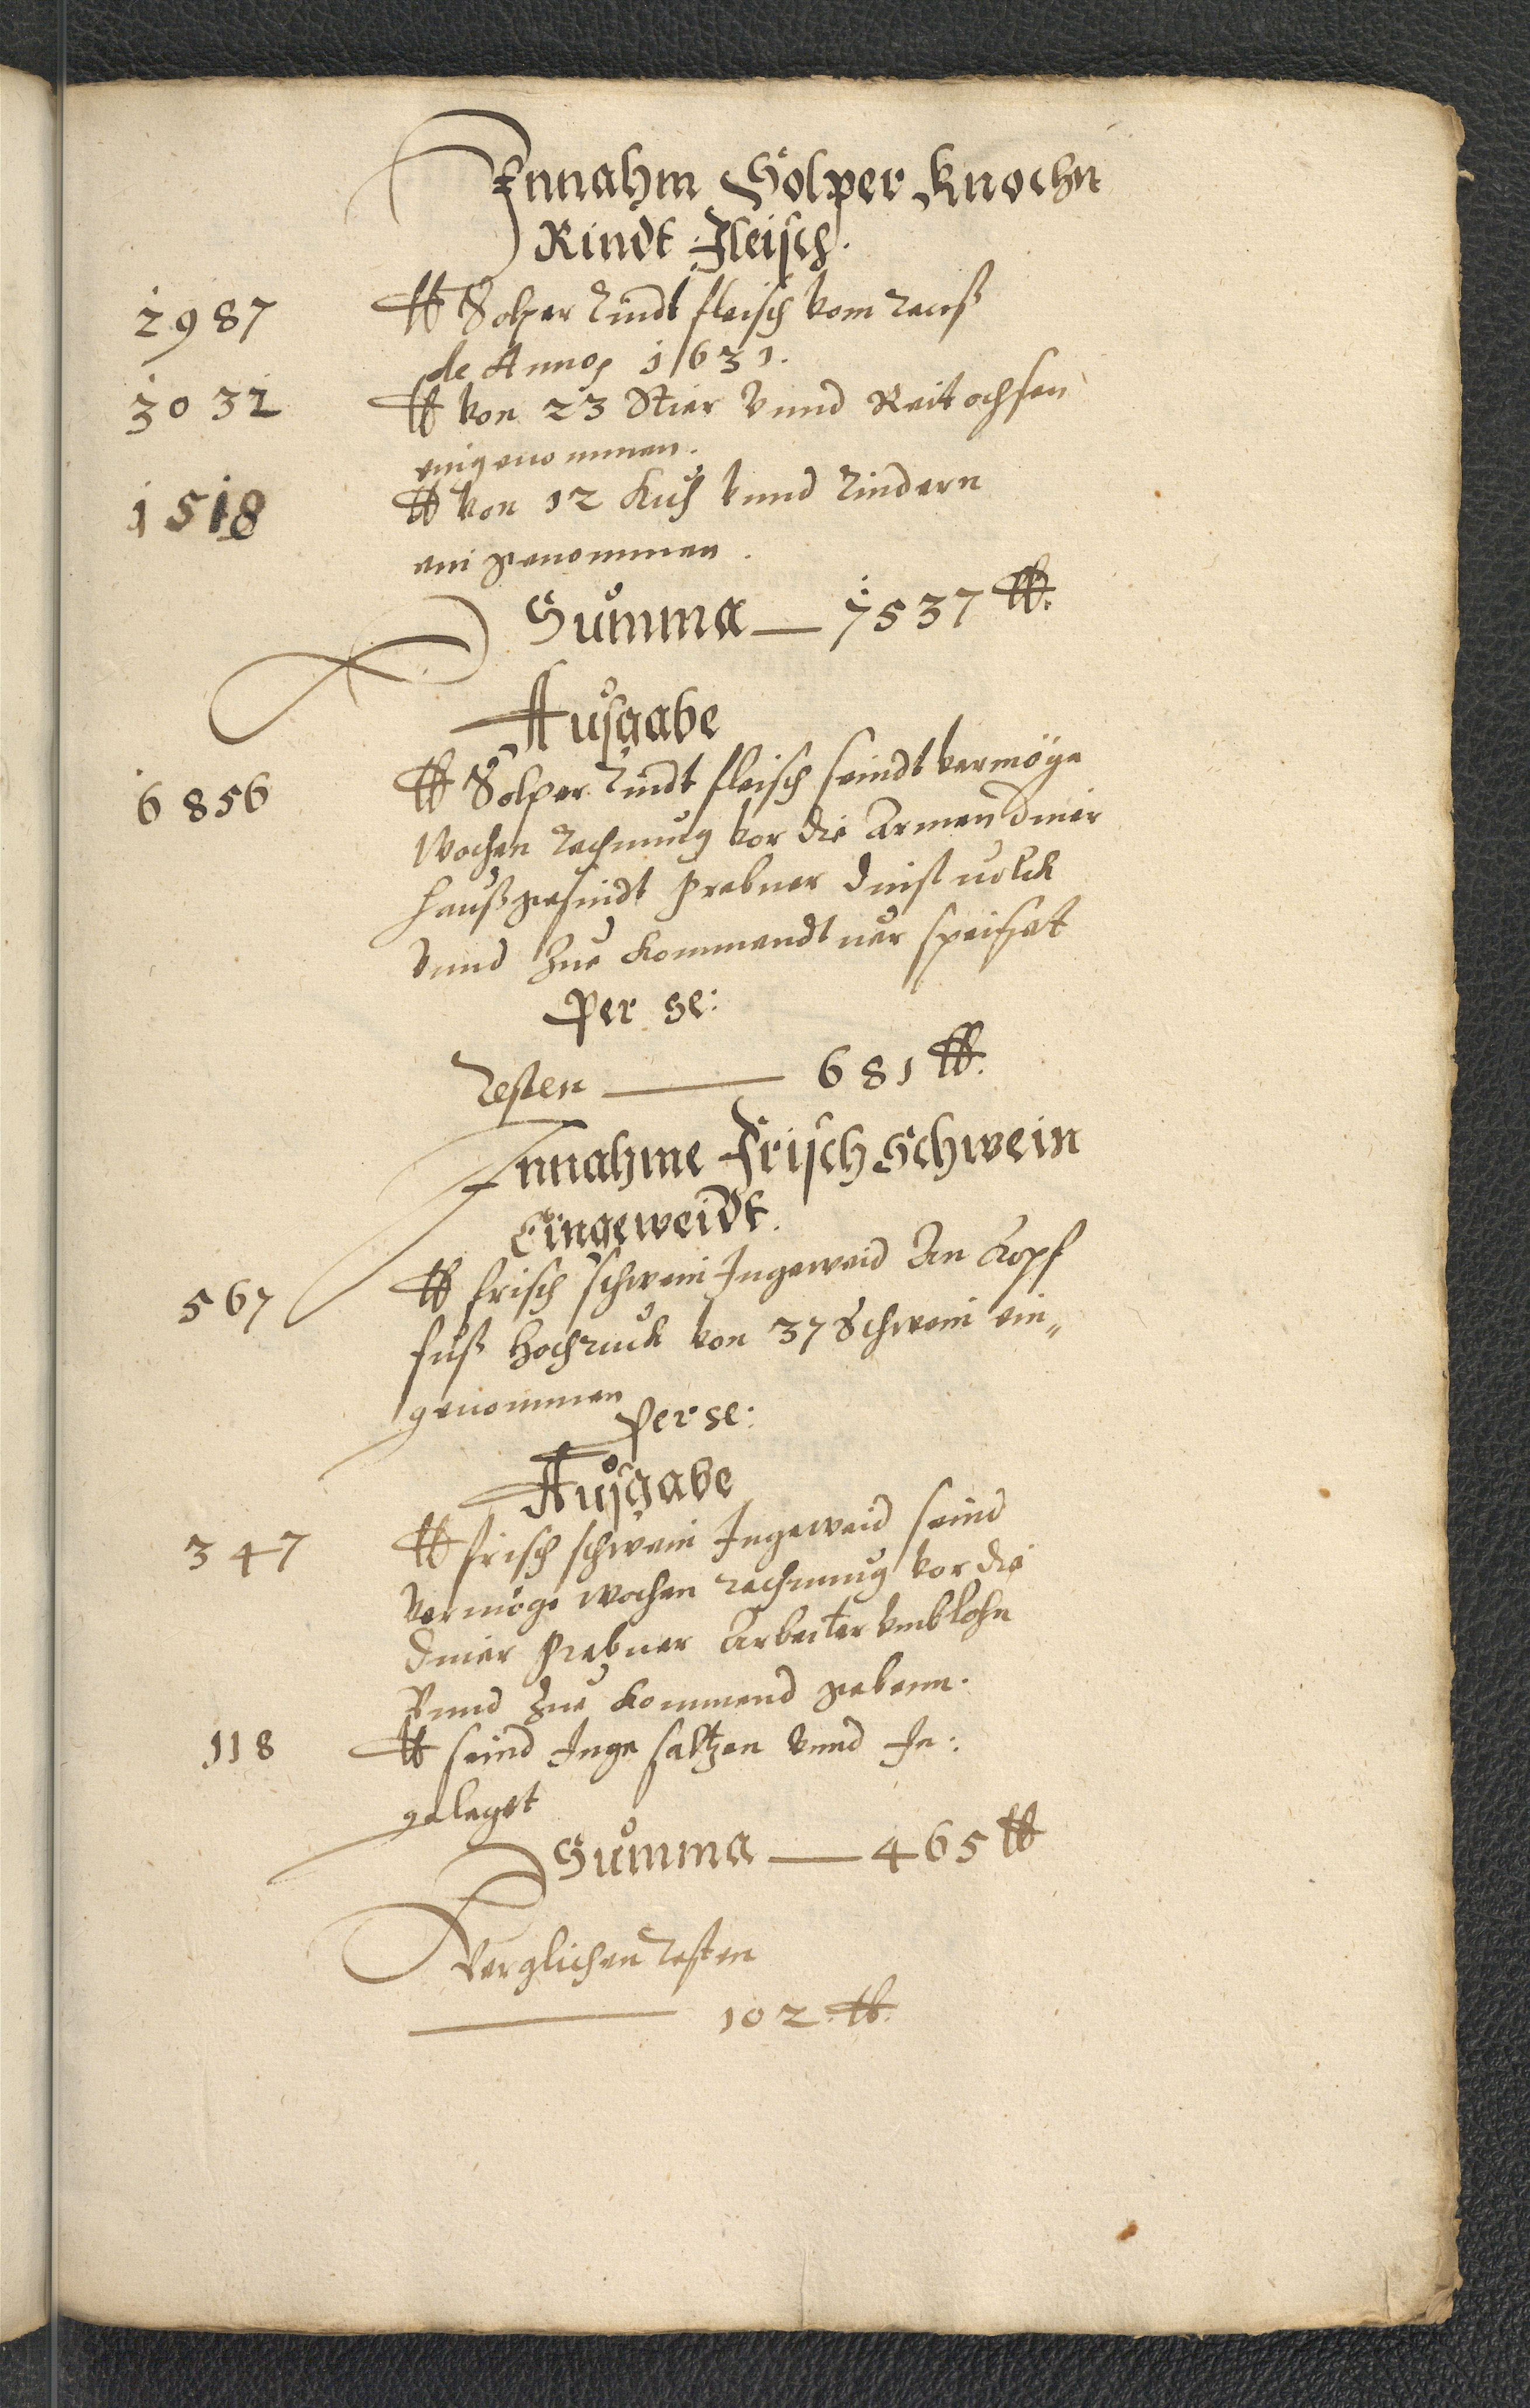 Innahm Solper Knochn
Rindt Fleisch.
2987 ℔ Solper rindt fleisch vom recess
de Anno 1631.
3032 ℔ von 23 Stier vnnd Reitochsen
eingenommen.
1518 ℔ von 12 Küh vnnd rindern
ein genommen.
Summa — 7537 ℔.
Ausgabe
6856 ℔ Solper rindt fleisch seindt vermöge
Wochen rechnung vor die Armen diener
haußgesindt grebner dinst volck
vnnd zue kommendt speiset
Per se:
resten — 681 ℔.
Innahme Frisch Schwein
Eingeweidt.
567 ℔ frisch schwein Ingeweid An Kopf
fuß von 37 Schwein ein„
genommen
Per se:
Ausgabe
347 ℔ frisch schwein Ingeweid seind
vermöge wochen rechnung vor die
diener grebner Arbeiter
vnnd zue kommend gebenn.
118 ℔ seind Inge saltzen vnnd In:
geleget
Summa — 465 ℔
Verglichen resten
— 102. ℔.